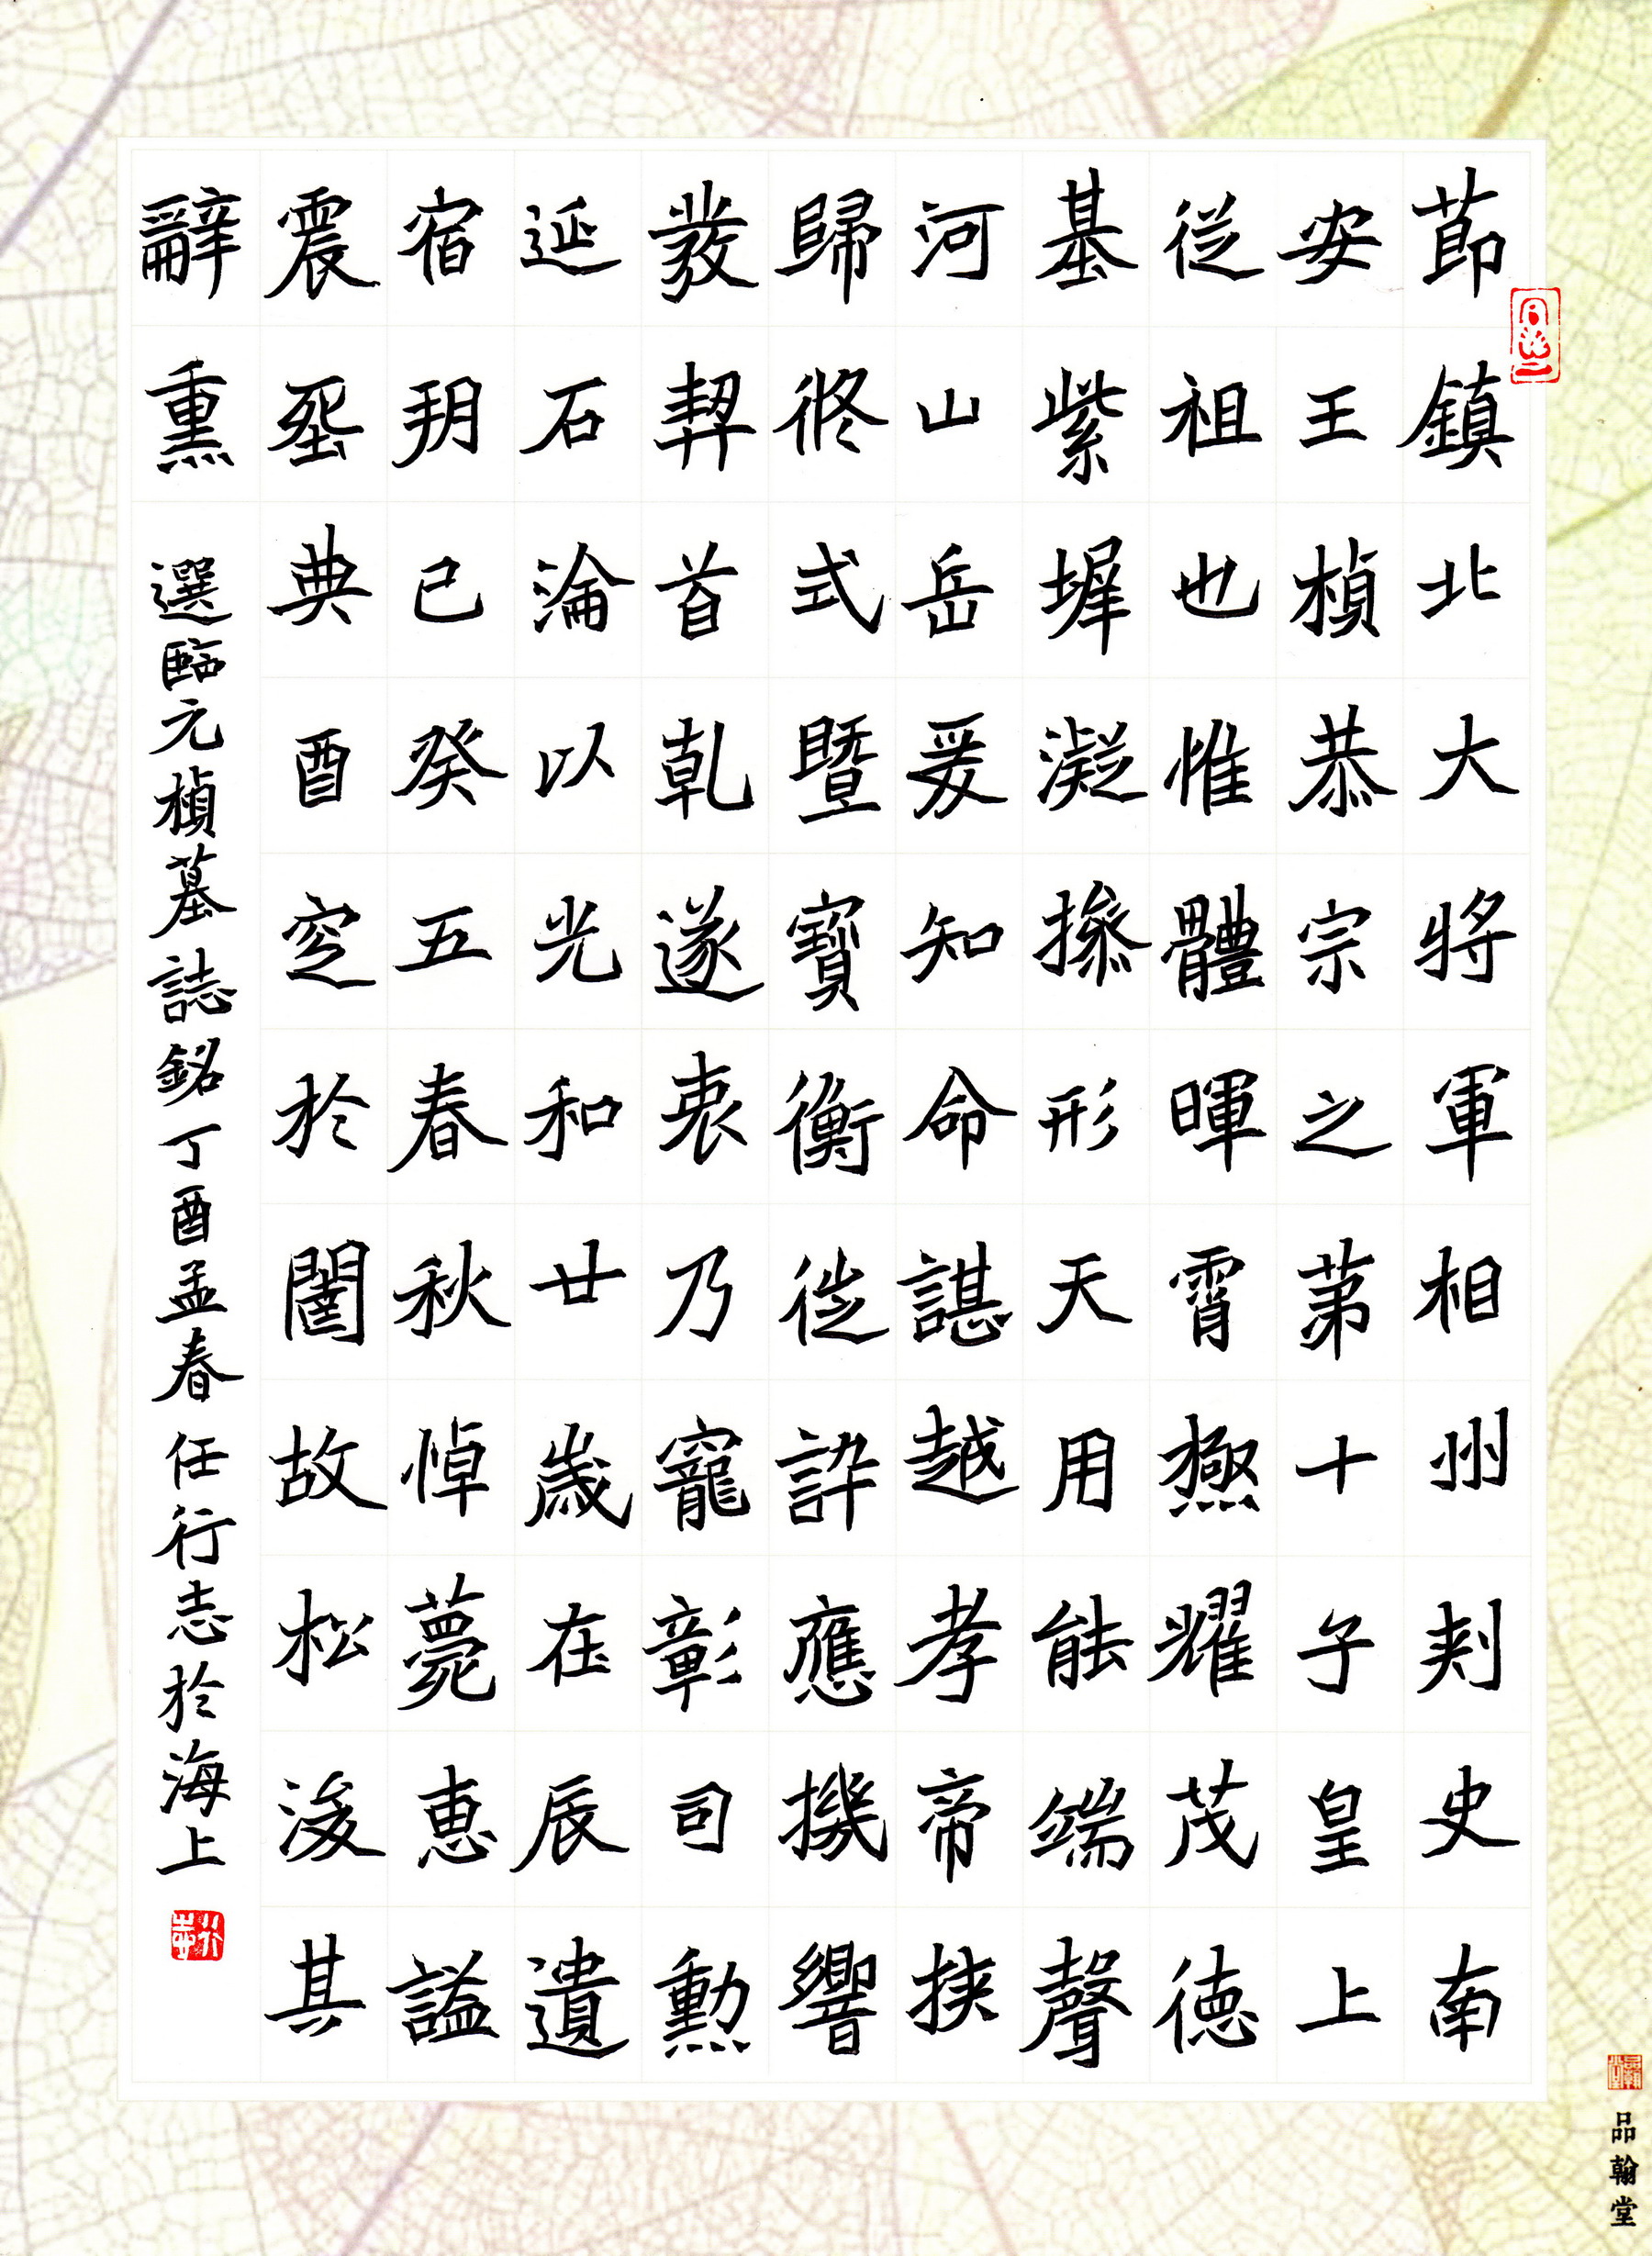 節鎮北大將軍相州刾史南
安王楨恭宗之第十一子皇上
從祖也惟體暉霄極耀茂德
基紫墀凝操形天用能端聲
河山岳爰知命諶越孝帝挾
歸終式暨寶衡徙許應機響
發契首乾遂衷乃寵彰司勳
延石淪以光和廿歲在辰遺
宿玥己癸五春秋悼薨恵謚
震丕典酉窆於闔故松浚其
辭熏
選臨元楨墓誌銘丁酉孟春任行志於海上
行志
品翰堂